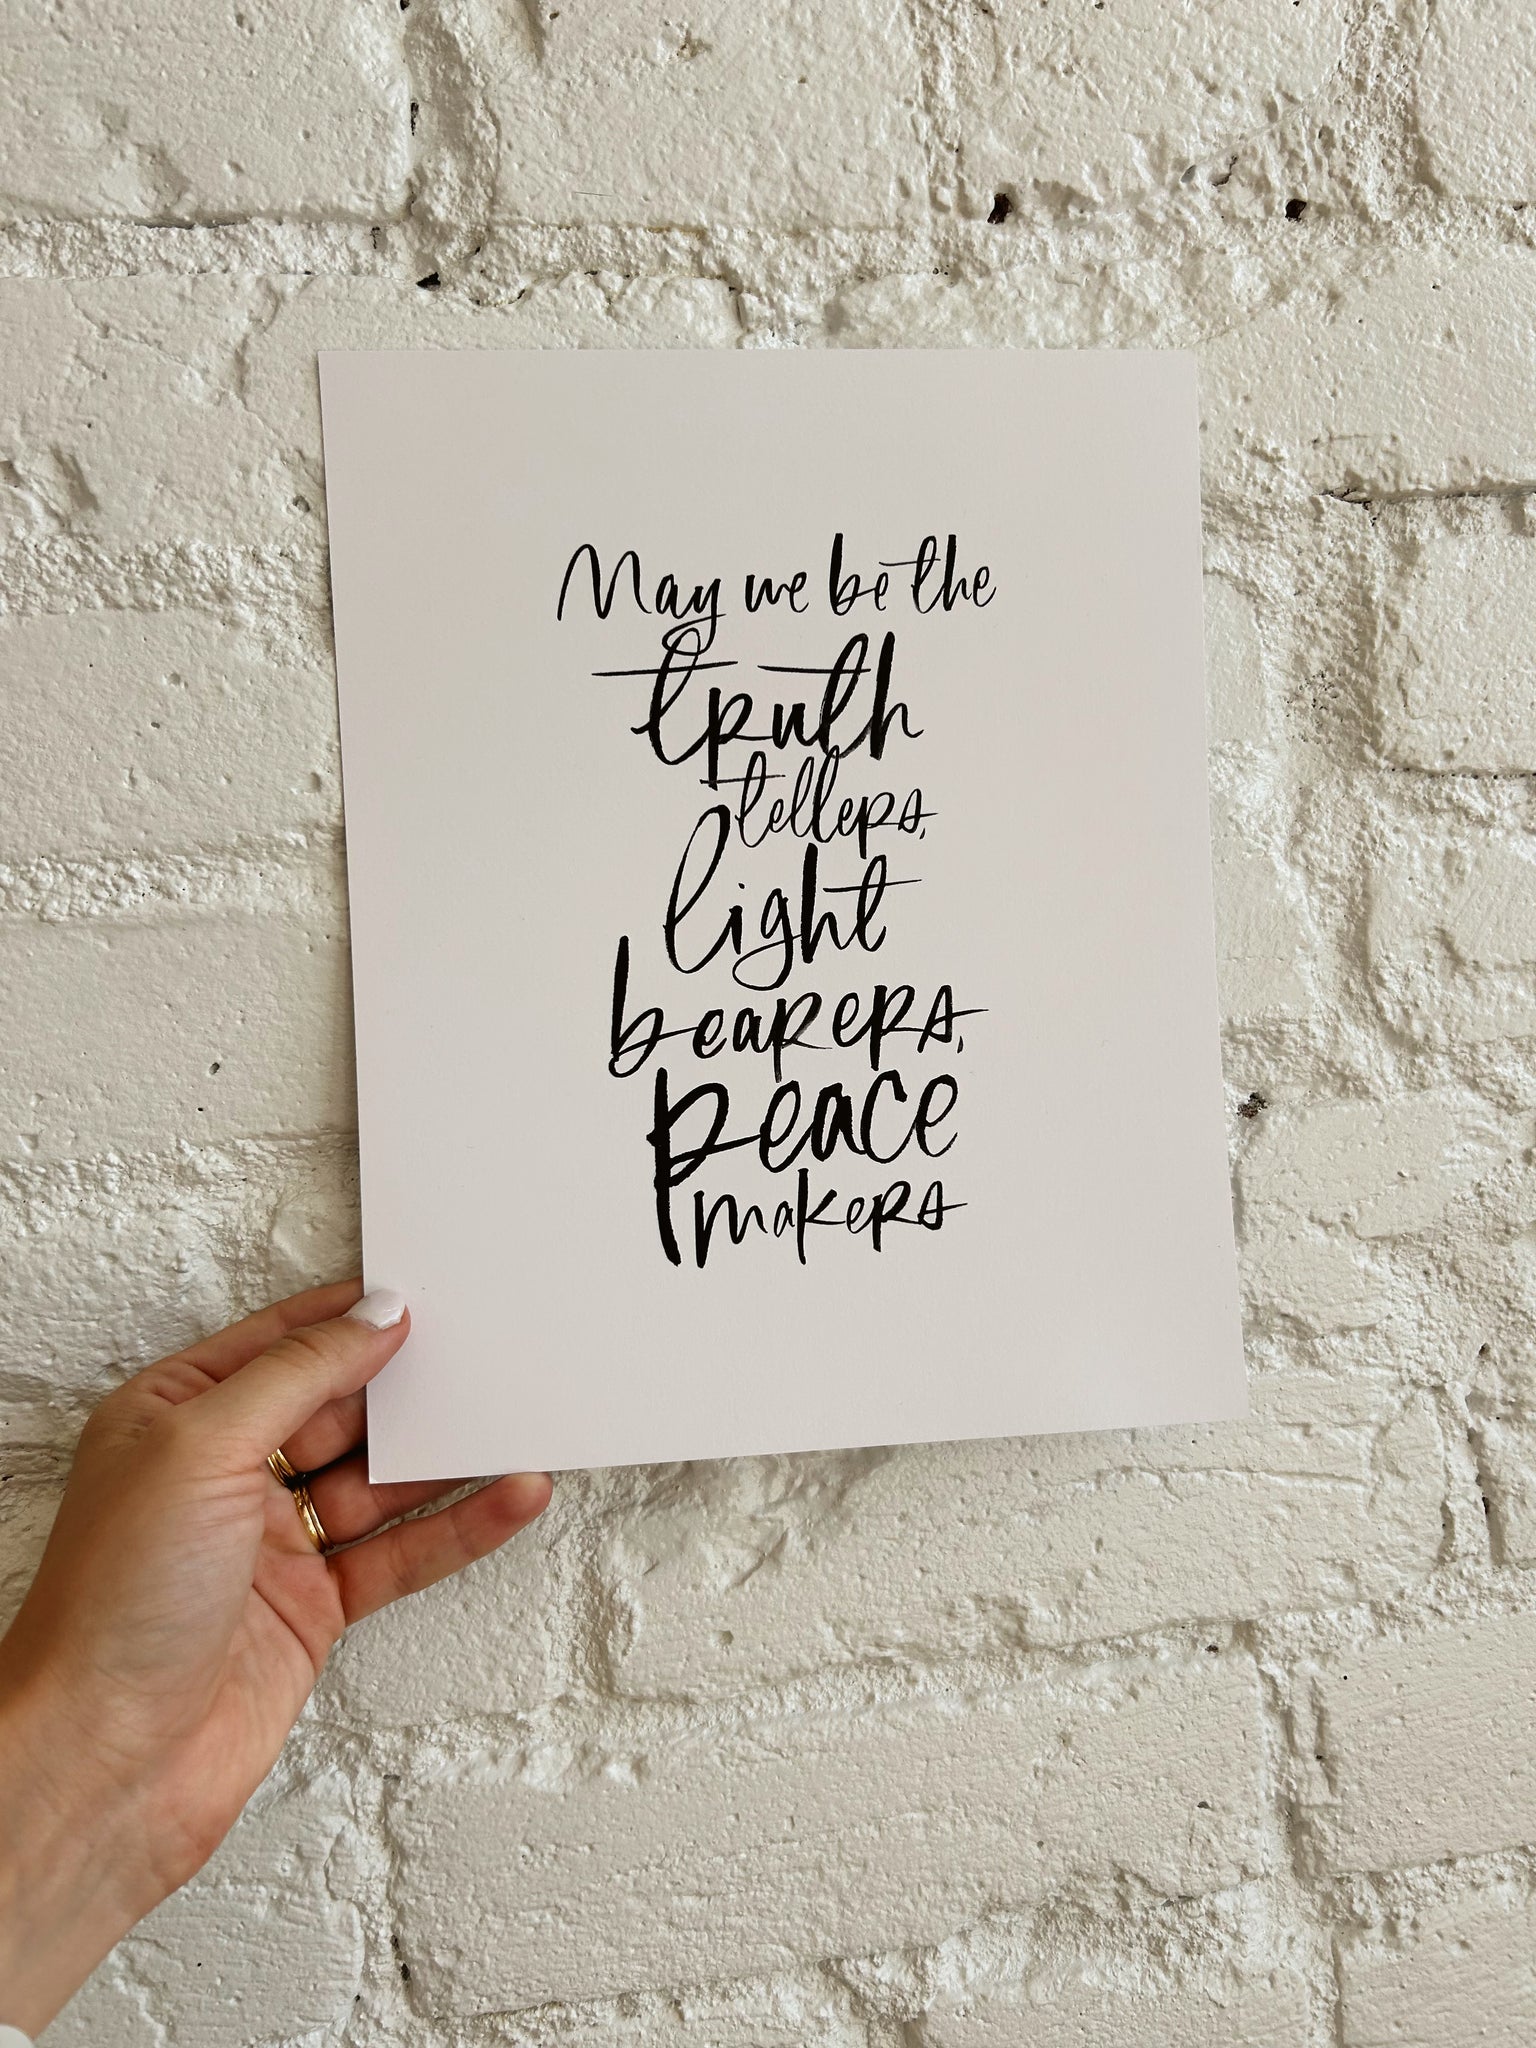 May we be the
truth
tellers,
light
bearers,
peace
makers